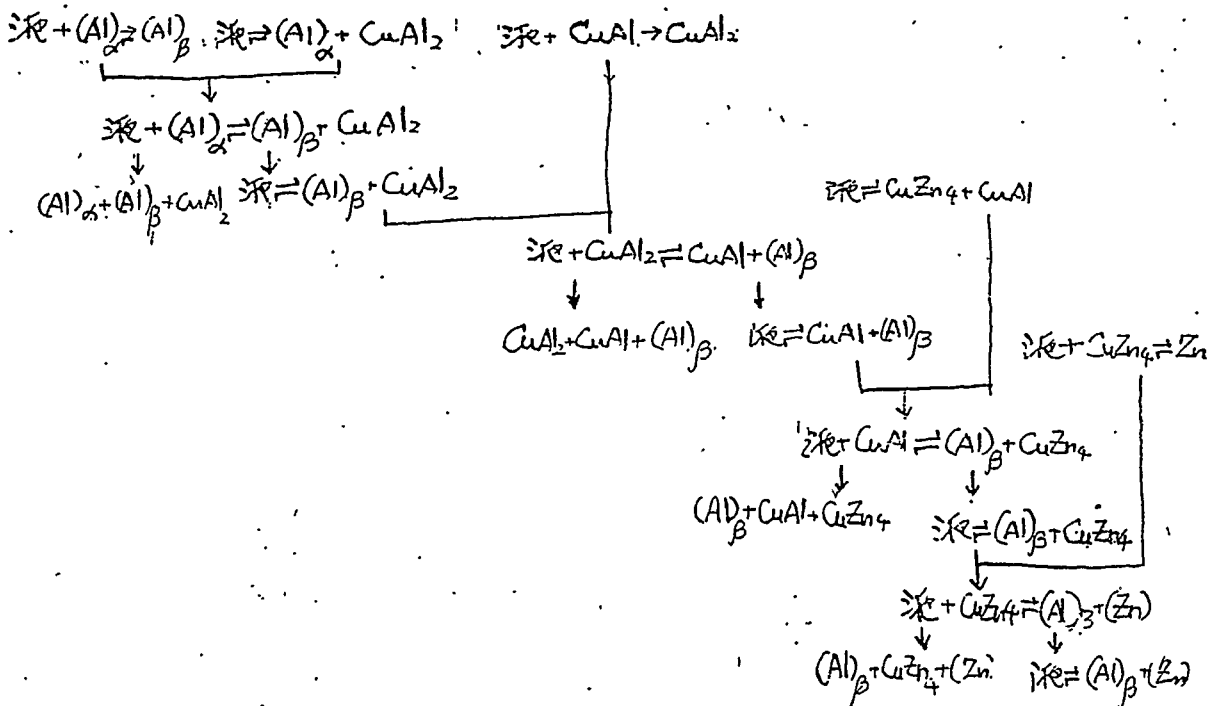 液+(Al)α⇌(Al)β 液⇌(Al)α+CuAl2 液+CuAl→CuAl2
液+(Al)α⇌(Al)β+CuAl2
(Al)α+(Al)β+CuAl2 液⇌(Al)β+CuAl2
液⇌CuZn4+CuAl
液+CuAl2⇌CuAl+(Al)β
CuAl2+CuAl+(Al)β 液⇌CuAl+(Al)β
液+CuZn4⇌Zn
液+CuAl⇌(Al)β+CuZn4
(Al)β+CuAl+CuZn4
液⇌(Al)β+CuZn4
液+CuZn4⇌(Al)β+(Zn)
(Al)β+CuZn4+(Zn) 液⇌(Al)β+(Zn)